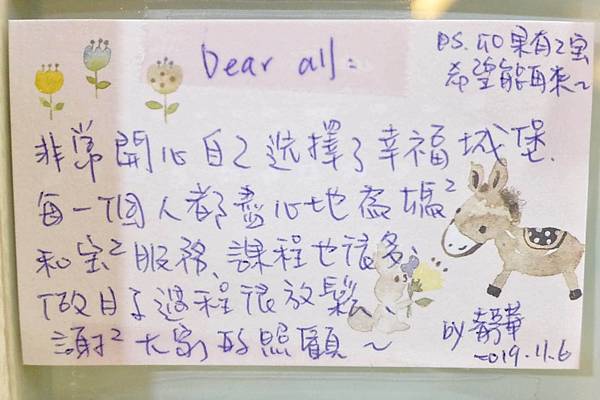 Dear all:
P.S. 如果有2宝
希望能再來~
非常開心自己選擇了幸福城堡、
每一個人都盡心地為媽²
和宝²服務、課程也很多、
做月子過程很放鬆、
謝²大家的照顧~
by
2019.11.6